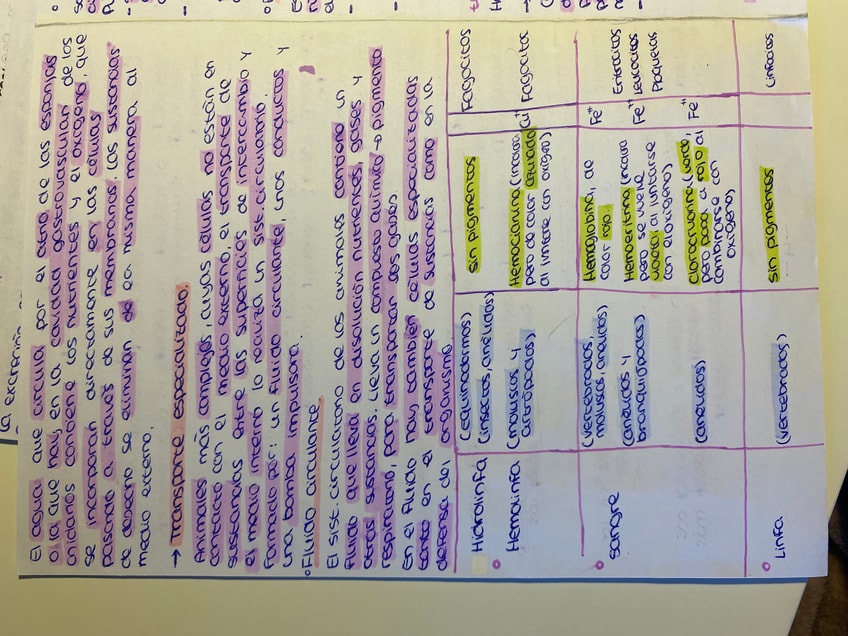 El agua que circula por el atrio de las esponjas
o la que hay en la cavidad gastrovascular de los
cnidarios contiene los nutrientes y el oxígeno, que
se incorporan directamente en las células
pasando a través de sus membranas. Las sustancias
de desecho se eliminan de la misma manera al
medio externo.
→ Transporte especializado.
Animales más complejos, cuyas células no están en
contacto con el medio externo, el transporte de
sustancias entre las superficies de intercambio y
el medio interno lo realiza un sist. circulatorio.
Formado por: un fluido circulante, unos conductos y
una bomba impulsora.
Fluido circulante.
El sist. circulatorio de los animales contiene un
fluido que lleva en disolución nutrientes, gases y
otras sustancias. Lleva un compuesto químico → pigmento
respiratorio, para transportar los gases.
En el fluido hay también células especializadas
tanto en el transporte de sustancias como en la
defensa del organismo.
Hidrolinfa (equinodermos) sin pigmentos Fagocitos
(insectos, anélidos)
Hemolinfa (moluscos y artrópodos) Hemocianina (incolora pero de color azulado al unirse con oxígeno) Cu⁺ Fagocitos
sangre (vertebrados, moluscos, anélidos) Hemoglobina, de color rojo. Fe⁺⁺ Eritrocitos Leucocitos Plaquetas
(anélidos y branquiópodos) Hemoeritrina (incolora pero se vuelve violeta al juntarse con el oxígeno) Fe⁺⁺
(anélidos) Clorocruorina (verde, pero pasa a rojo al combinarse con oxígeno) Fe⁺⁺
Linfa (vertebrados) sin pigmentos Linfocitos
la excreción